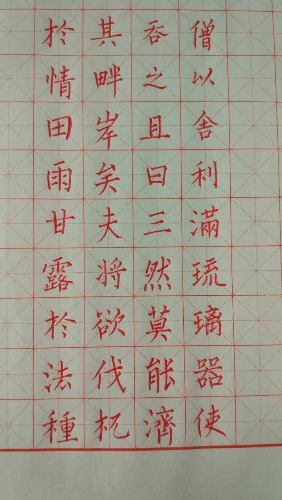 僧以舍利滿琉璃器使
吞之且曰三然莫能濟
其畔岸矣夫將欲伐杌
於情田雨甘露於法種